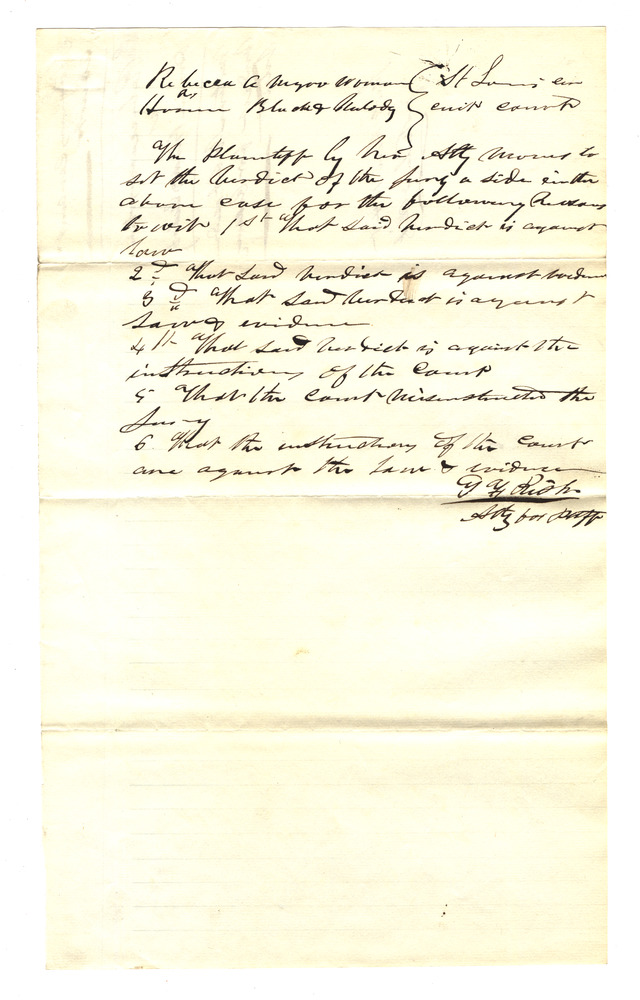 Rebecca a negro woman { St Louis cir
vs
Horine Black & Melody { cuit court
The Plaintiff by her Atty moves to
set the verdict of the jury a side in the
above case for the following Reasons
to wit 1st That said verdict is against
law
2d That said verdict is against evidence
3d That said verdict is against
Law & evidence
4th That said verdict is against the
instructions of the Court
5 That the Court misinstructed the
Jury
6 That the instructions of the Court
are against the law & evidence
Atty for Plff